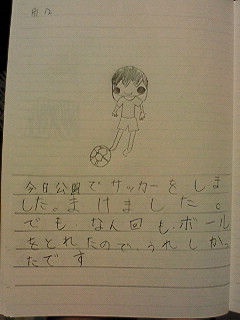 今日公園でサッカーをしま
した。まけました。
でも、なん回も、ボール
をとれたので、うれしかっ
たです